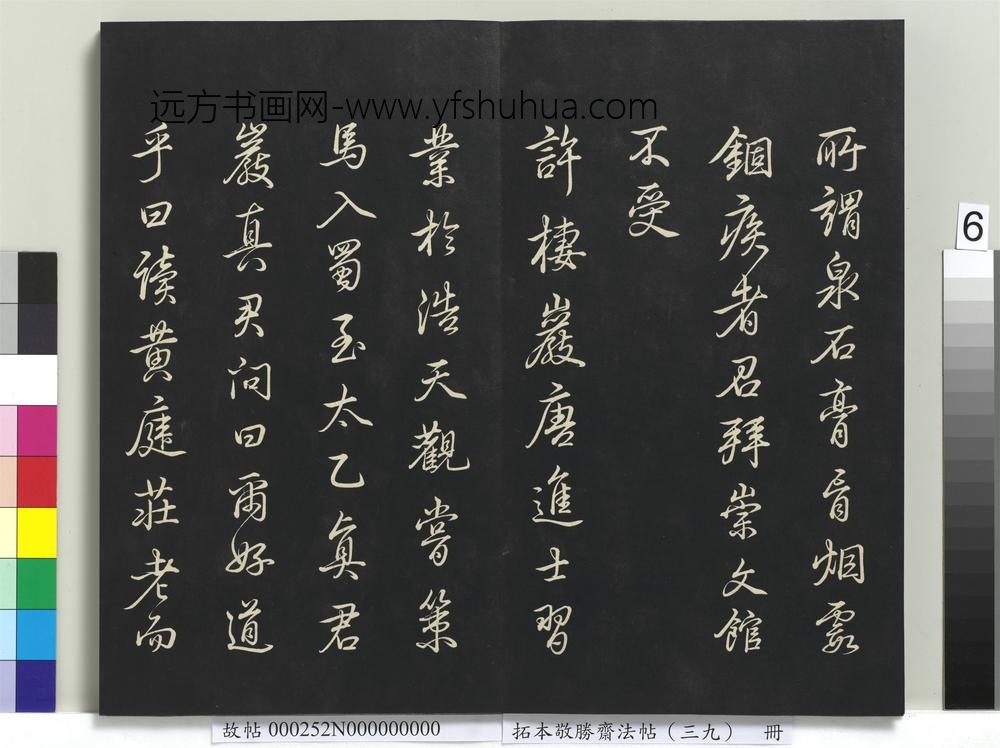 远方书画网-www.yfshuhua.com
所謂泉石膏肓烟霞
錮疾者君拜崇文館
不受
許棲巖唐進士習
業於浩天觀嘗策
馬入蜀至太乙真君
巖真君问曰爾好道
乎曰读黄庭莊老而
6
故帖 000252N000000000
拓本敬勝齋法帖（三九） 冊